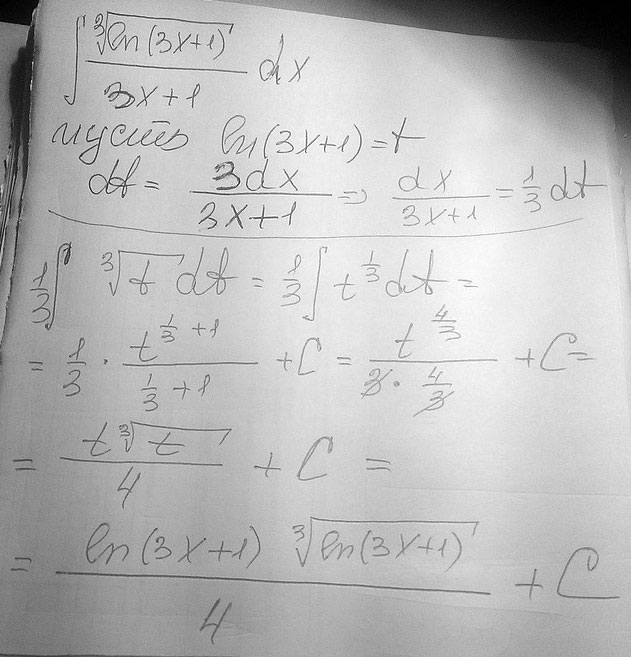 ∫ ∛(ln(3x+1)) / (3x+1) dx
пусть ln(3x+1)=t
dt = 3dx / (3x+1) => dx / (3x+1) = 1/3 dt
1/3 ∫ ∛t dt = 1/3 ∫ t^(1/3) dt =
= 1/3 · t^(1/3 +1) / (1/3 +1) + C = t^(4/3) / (3 · 4/3) + C =
= t∛t / 4 + C =
= ln(3x+1) ∛(ln(3x+1)) / 4 + C